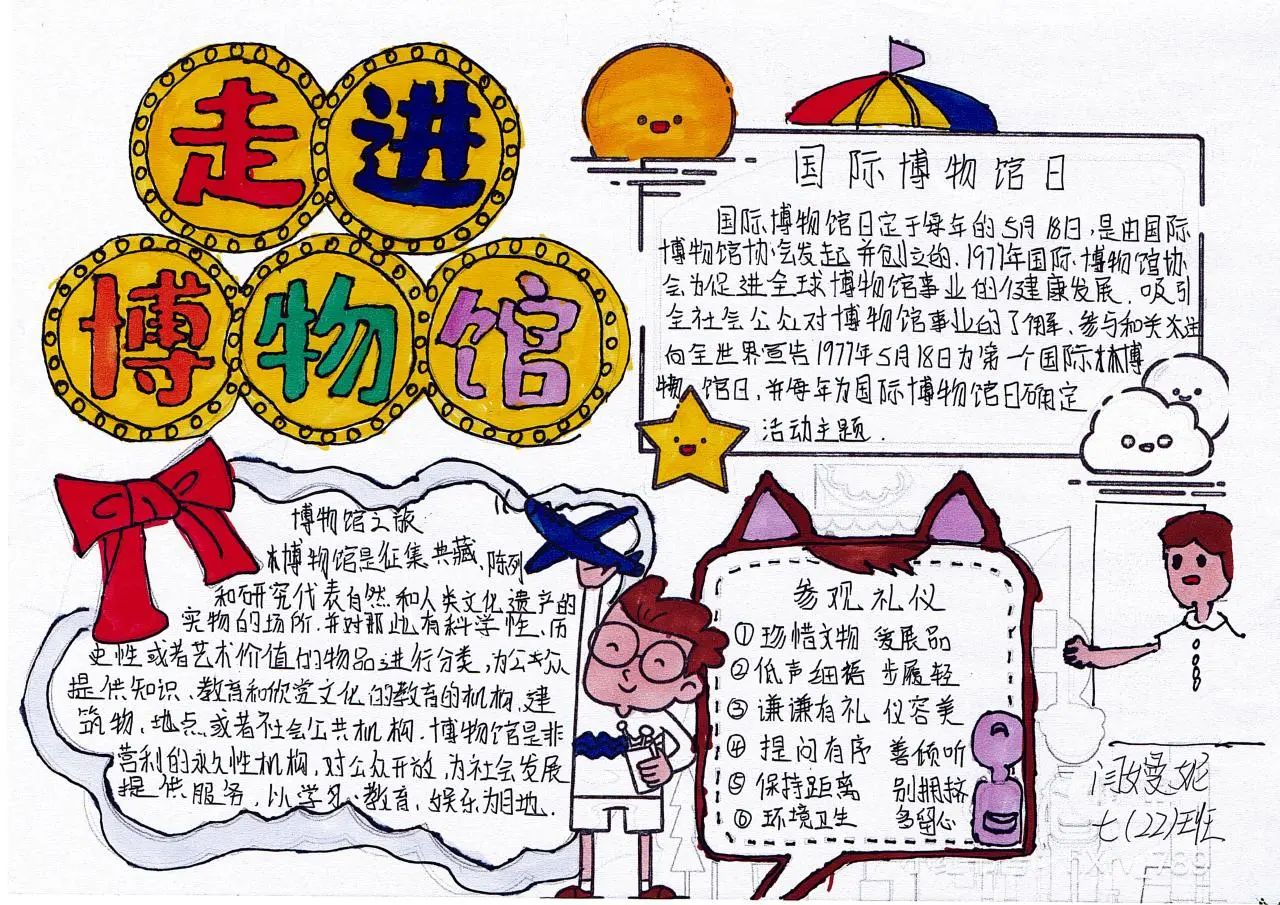 走进
博物馆
国际博物馆日
国际博物馆日定于每年的5月18日,是由国际
博物馆协会发起并创立的、1977年国际博物馆协
会为促进全球博物馆事业的健康发展,吸引
全社会公众对博物馆事业的了解、参与和关注
向全世界宣告1977年5月18日为第一个国际博
物馆日,并每年为国际博物馆日确定
活动主题.
博物馆之旅
博物馆是征集典藏、陈列
和研究代表自然和人类文化遗产的
实物的场所.并对那些有科学性、历
史性或者艺术价值的物品进行分类,为公众
提供知识、教育和欣赏文化的教育的机构、建
筑物、地点或者社会公共机构.博物馆是非
营利的永久性机构,对公众开放,为社会发展
提供服务,以学习、教育、娱乐为目地.
参观礼仪
①珍惜文物 爱展品
②低声细语 步履轻
③谦谦有礼 仪容美
④提问有序 善倾听
⑤保持距离 别拥挤
⑥环境卫生 多留心
七(22)班